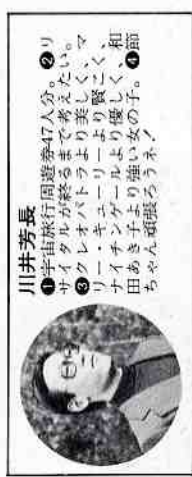 川井芳長
❶宇宙旅行周遊券47人分。❷リ
サイタルが終るまで考えたい。
❸クレオパトラより美しく、マ
リー・キューリーより賢こく、
ナイチンゲールより優しく、和
田あき子より強い女の子。❹節
ちゃん頑張ろうネ!